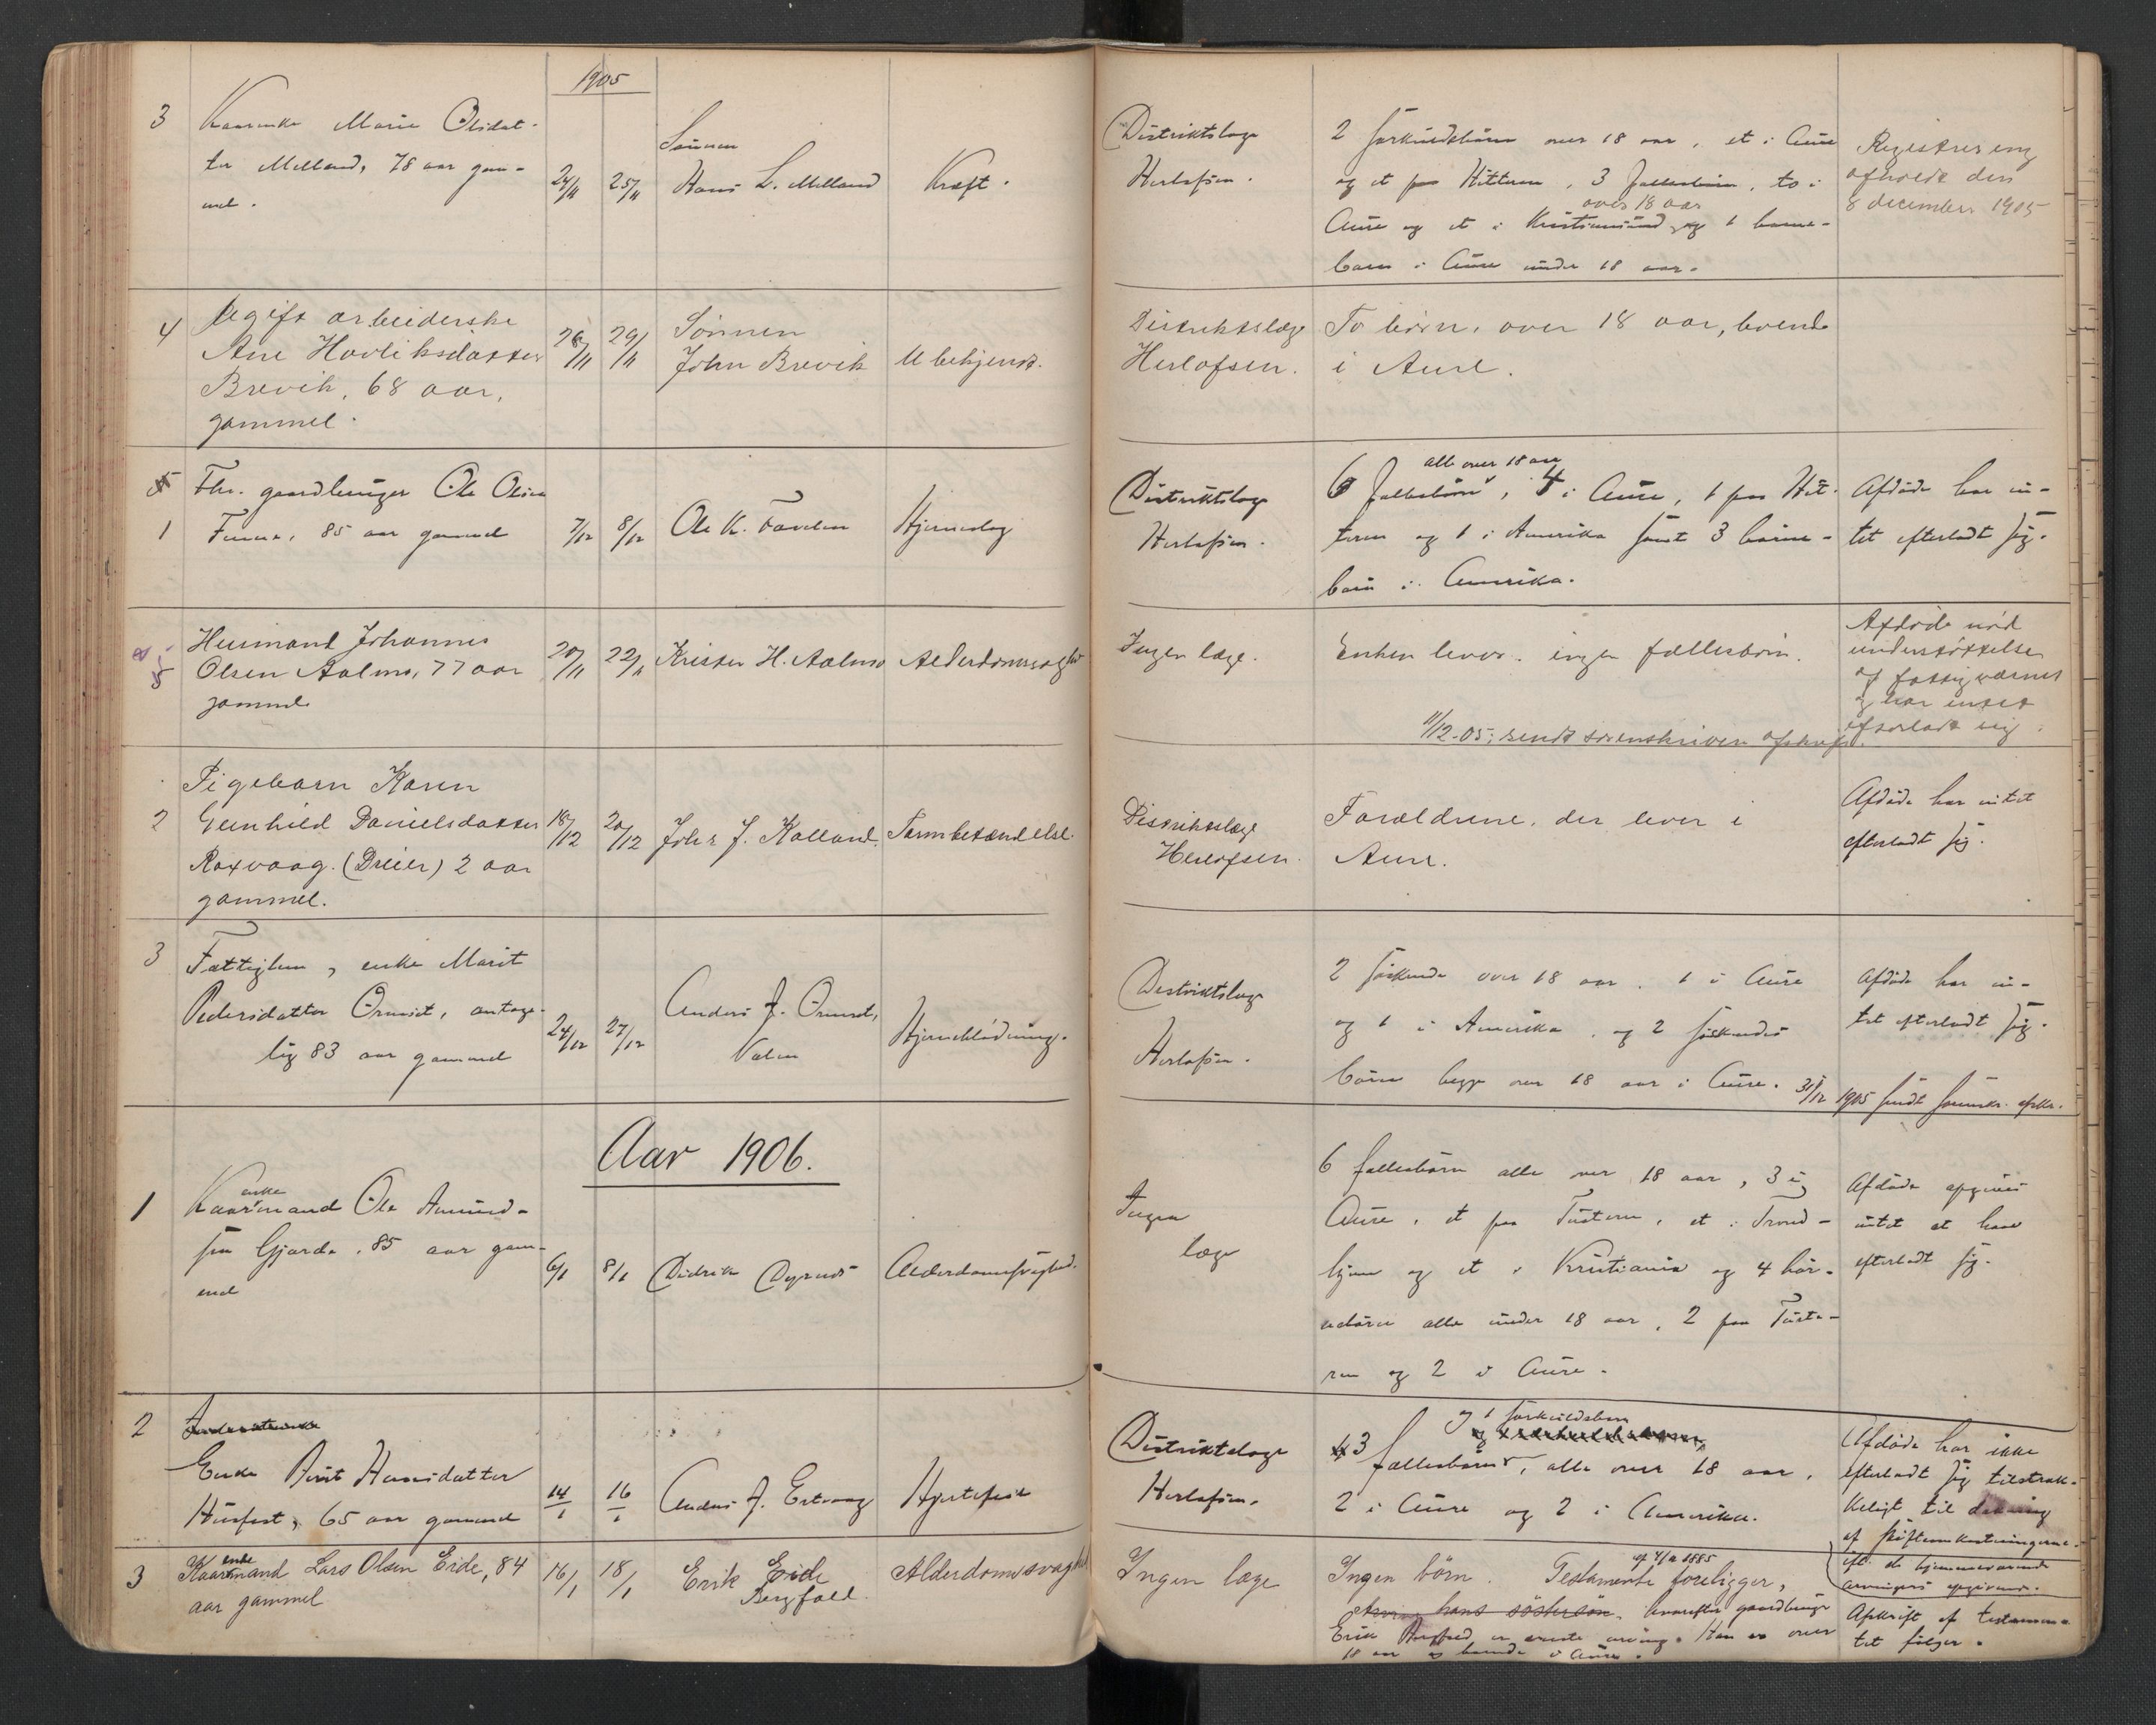 1905
3
Kaarenke Marie Olsdat-
ter Melland, 78 aar gam-
mel.
24/11
25/11
Sønnen
Hans L. Melland
Kræft.
Distriktslæge
Herlofsen.
2 særkuldsbørn over 18 aar, et i Aure
og et paa Hitteren, 3 fællesbørn, to i
over 18 aar
Aure og et i Kristiansund og 1 barne-
barn i Aure under 18 aar.
Registrering
afholdt den
8 december 1905
4
Ugift arbeiderske
Ane Havliksdatter
Brevik, 68 aar,
gammel.
28/11
29/11
Sönnen
John Brevik
Ubekjendt.
Distriktslæge
Herlofsen.
To börn, over 18 aar, boende
i Aure.
1
Fhv. gaardbruger Ole Olsen
85 aar gammel
7/12
8/12
Ole K.
Hjerneslag
Distriktslæge
Herlofsen.
alle over 18 aar
6 fællesbörn, 4 i Aure, 1 paa Hit-
teren og 1 i Amerika samt 3 barne-
barn i Amerika.
Afdöde har in-
tet efterladt sig.
5
Husmand Johannes
Olsen Aalmo, 77 aar
gammel
20/11
22/11
Krister H. Aalmo
Alderdomssvaghed
Ingen læge.
Enken lever. ingen fællesbörn.
11/12-05; sendt sorenskriver afskrift.
Afdöde nöd
understöttelse
af fattigvæsenet
og har intet
efterladt sig.
2
Pigebarn Karen
Gunhild Danielsdatter
Roxvaag. (Dreier) 2 aar
gammel.
18/12
20/12
Johs J. Kalland.
Tarmbetændelse.
Distriktslæge
Herlofsen.
Forældrene, der lever i
Aure.
Afdöde har intet
efterladt sig.
3
Fattiglem, enke Marit
Pedersdatter Ormset, antage-
lig 83 aar gammel
24/12
27/12
Anders J. Ormset,
Valen
Hjerneblödning.
Distriktslæge
Herlofsen.
2 söskende over 18 aar, 1 i Aure
og 1 i Amerika, og 2 söskende-
börn begge over 18 aar i Aure.
31/12 1905 sendt sorenskr. afskr.
Afdöde har in-
tet efterladt sig.
Aar 1906.
1
enke
Kaarmand Ole Amund-
sen Gjerde, 85 aar gam-
mel
6/1
8/1
Didrik Dyrnes
Alderdomssvaghed.
Ingen
læge
6 fællesbörn alle over 18 aar, 3 i
Aure, et paa Tusteren, et i Trond-
hjem og et i Kristiania og 4 bar-
nebörn alle under 18 aar, 2 paa Tuste-
ren og 2 i Aure.
Afdöde opgives
intet at have
efterladt sig.
2
Enke Berit Hansdatter
Husfest, 65 aar gammel
14/1
16/1
Anders J. Ertvaag
Hjertefeil
Distriktslæge
Herlofsen.
og 1 særkuldsbarn
3 fællesbörn, alle over 18 aar,
2 i Aure og 2 i Amerika.
Afdöde har ikke
efterladt sig tilstræk-
keligt til dækning
af skifteomkostningerne
eft. de hjemmeværende
arvingers opgivende.
3
enke
Kaarmand Lars Olsen Eide, 84
aar gammel
16/1
18/1
Erik Eide
Bergfald.
Alderdomssvaghed
Ingen læge
Ingen börn. Testamente foreligger,
hans söstersön, hvorefter gaardbruger
Erik er eneste arving. Han er over
18 aar og boende i Aure.
Afskrift af testamen-
tet fölger.